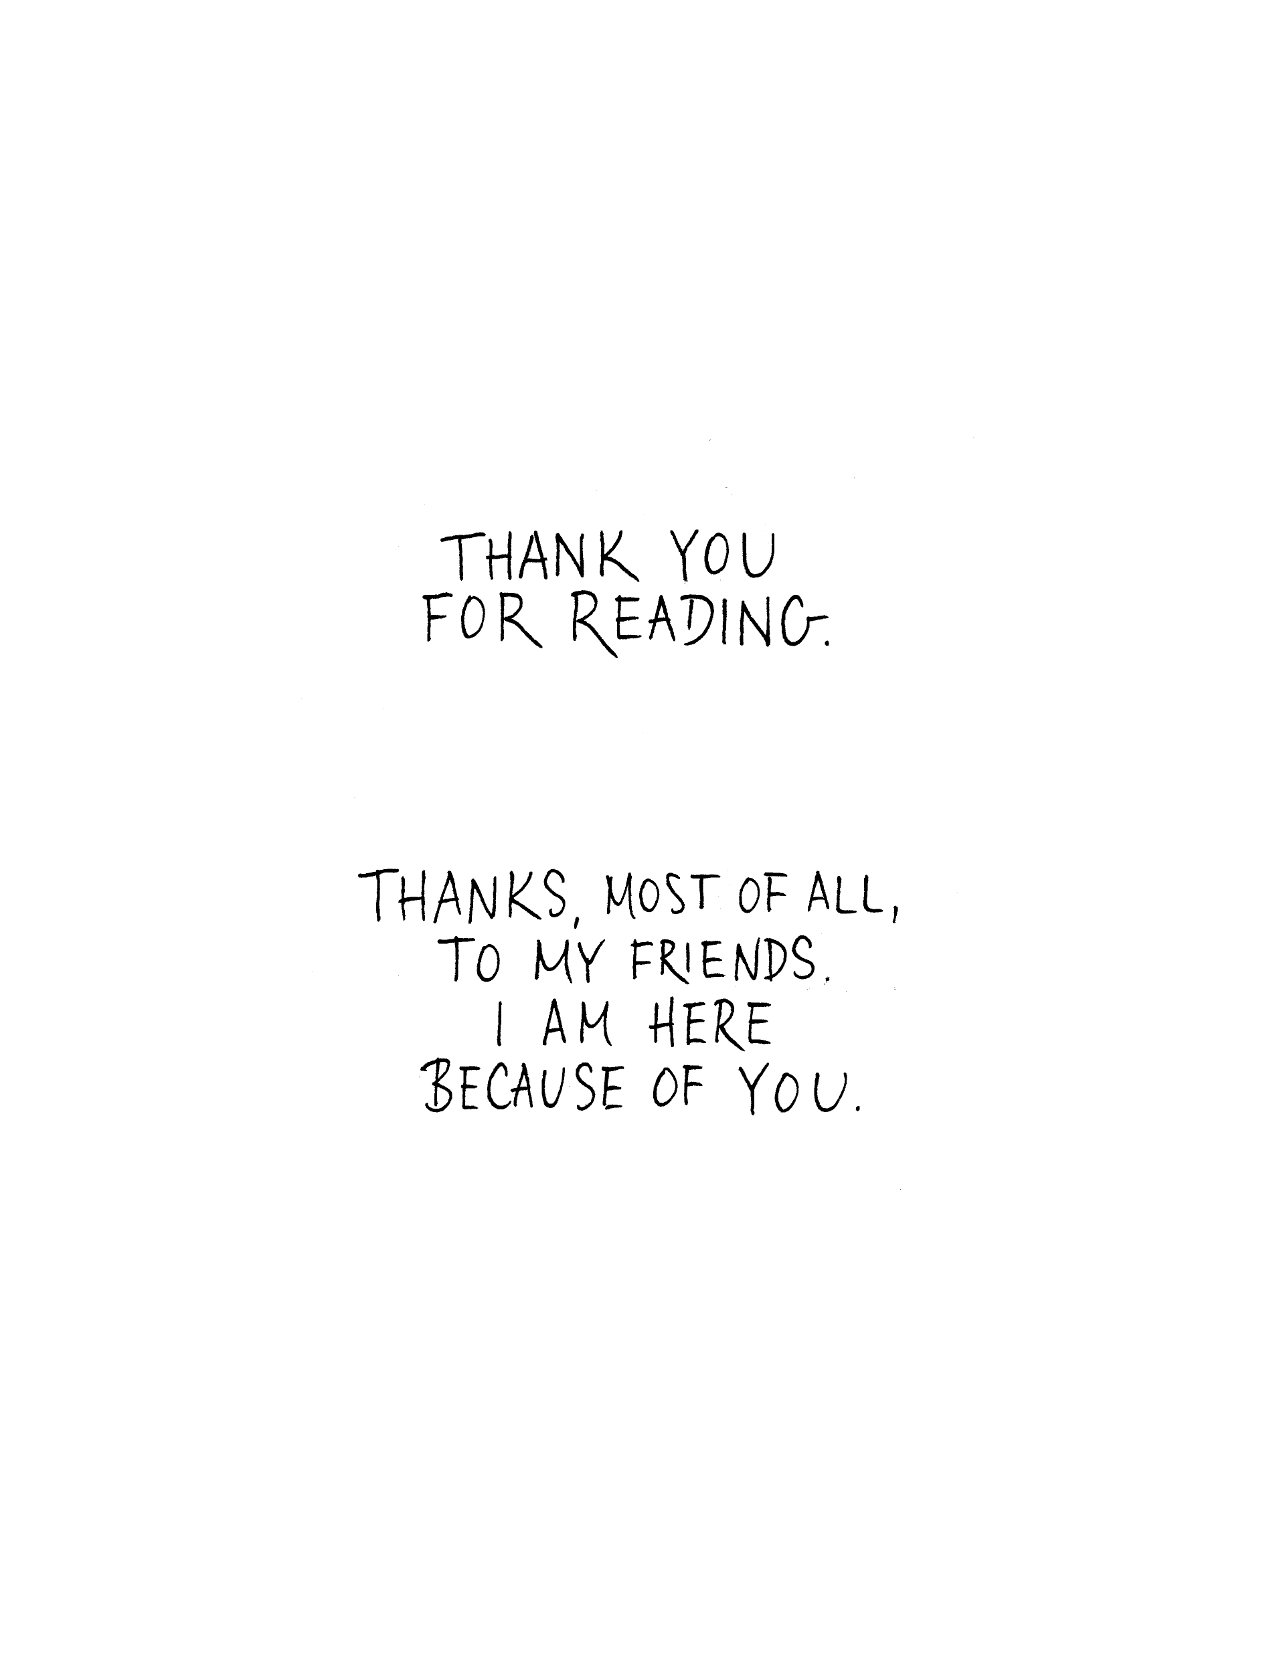 THANK YOU
FOR READING.
THANKS, MOST OF ALL,
TO MY FRIENDS.
I AM HERE
BECAUSE OF YOU.